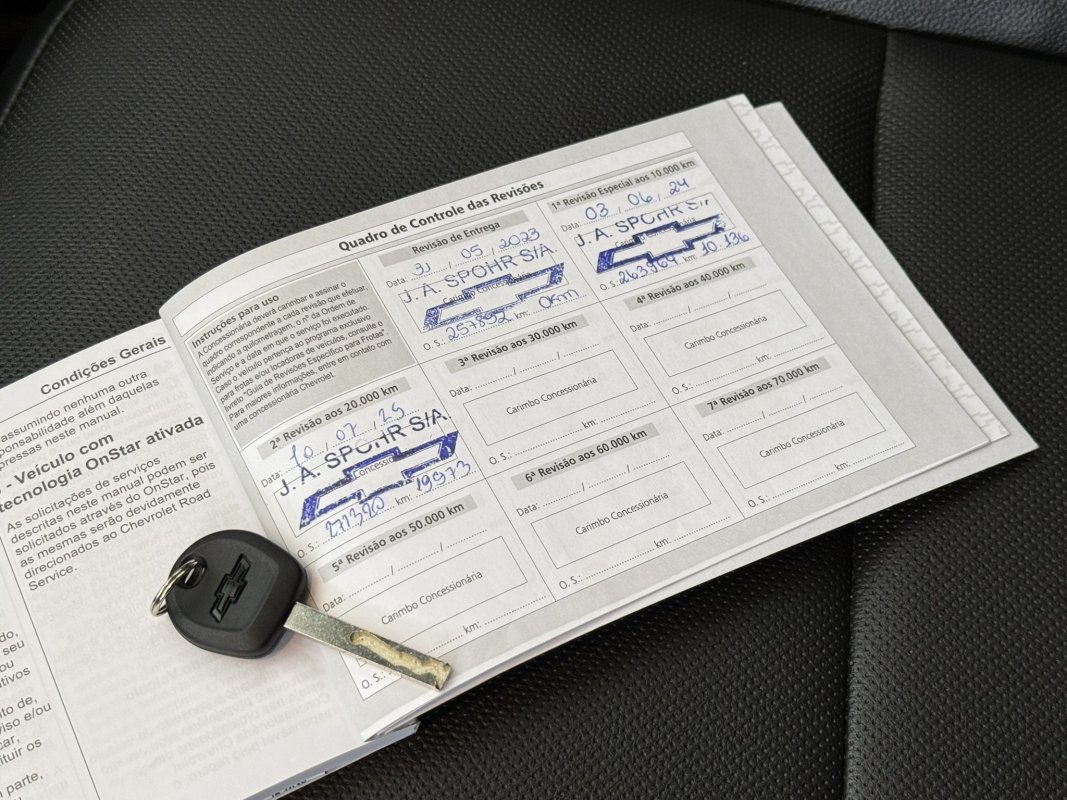 Condições Gerais
assumindo nenhuma outra
ponsabilidade além daquelas
pressas neste manual.
- Veículo com
tecnologia OnStar ativada
As solicitações de serviços
descritas neste manual podem ser
solicitados através do OnStar, pois
as mesmas serão devidamente
direcionados ao Chevrolet Road
Service.
do,
seu
ou
tivos
to de,
viso e/ou
car,
tituir os
parte,
ou
Quadro de Controle das Revisões
Instruções para uso
A Concessionária deverá carimbar e assinar o
quadro correspondente a cada revisão que efetuar,
indicando a quilometragem, o nº da Ordem de
Serviço e a data em que o serviço foi executado.
Caso o veículo pertença ao programa exclusivo
para frotas e/ou locadoras de veículos, consulte o
livreto "Guia de Revisões Específico para Frotas".
Para maiores informações, entre em contato com
uma concessionária Chevrolet.
Revisão de Entrega
Data: 31 / 05 / 2023
J. A. SPOHR S/A.
O. S.: 257892 0km
1ª Revisão Especial aos 10.000 km
Data: 03 / 06 / 24
J. A. SPOHR S/A
O. S.: 263969 km: 10.136
2ª Revisão aos 20.000 km
Data: 10 / 07 / 25
J. A. SPOHR S/A.
O. S.: 271390 km: 19973
3ª Revisão aos 30.000 km
Data: / /
Carimbo Concessionária
O. S.: km:
4ª Revisão aos 40.000 km
Data: / /
Carimbo Concessionária
O. S.: km:
5ª Revisão aos 50.000 km
Data: / /
Carimbo Concessionária
O. S.: km:
6ª Revisão aos 60.000 km
Data: / /
Carimbo Concessionária
O. S.: km:
7ª Revisão aos 70.000 km
Data: / /
Carimbo Concessionária
O. S.: km: